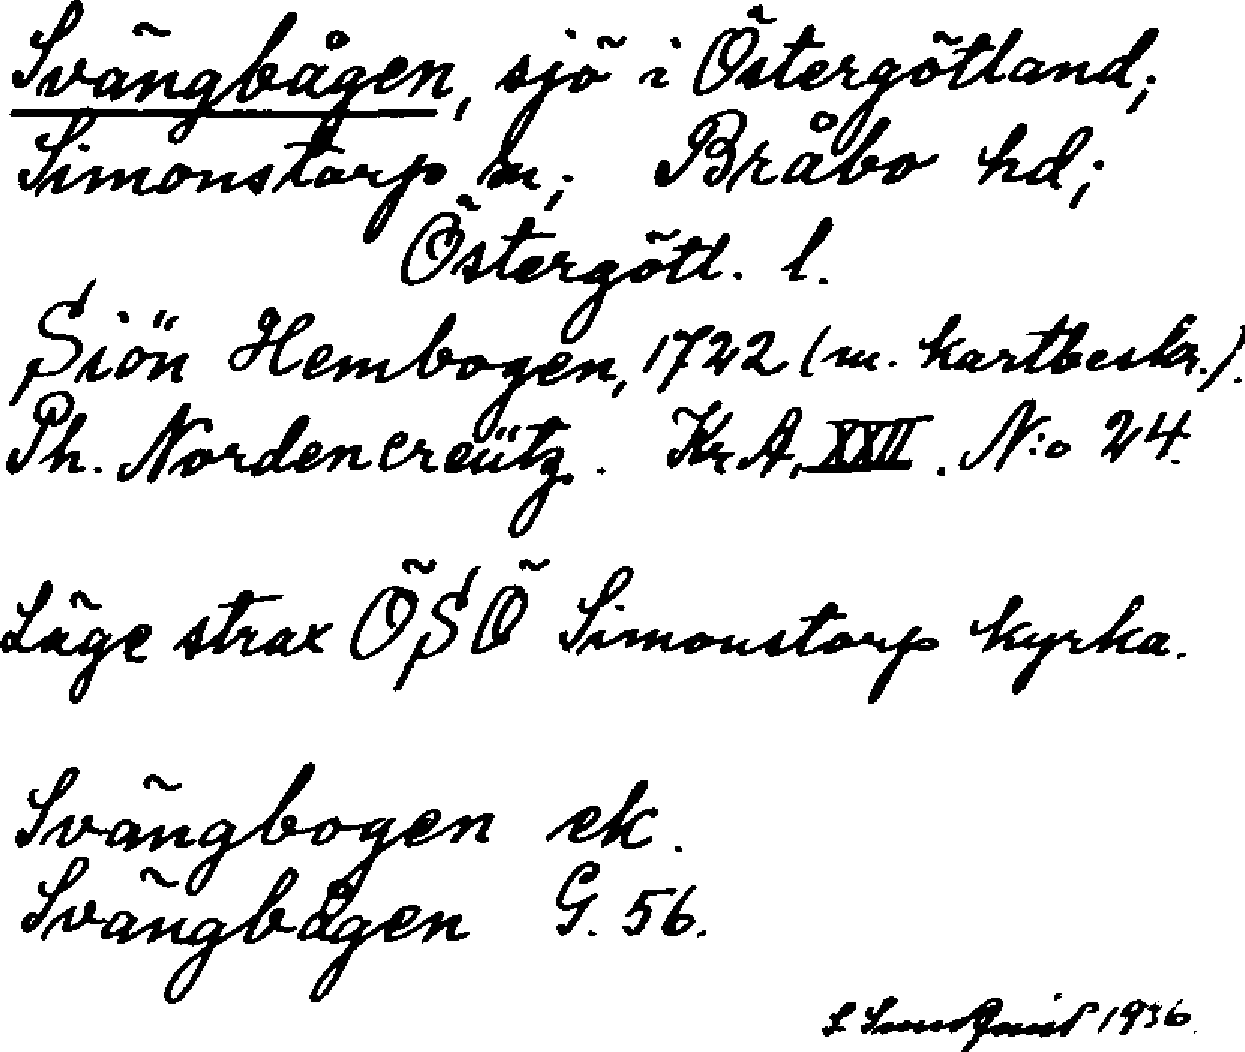 Svängbågen, sjö i Östergötland;
Simonstorp sn; Bråbo hd;
Östergötl. l.
Siön Hembogen, 1722 (m. kartbeskr.).
Ph. Nordencreütz. Kr. A. XXII. N:o 24.
Läge strax ÖSÖ Simonstorp kyrka.
Svängbogen ek.
Svängbågen G. 56.
1936